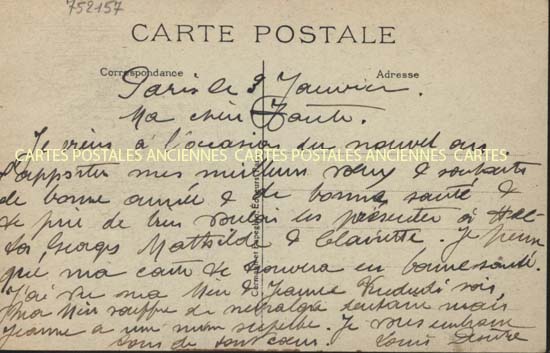 752157
CARTE POSTALE
Correspondance Adresse
Paris le 3 Janvier.
Ma chère Tante.
Je viens à l'occasion du nouvel an.
CARTES POSTALES ANCIENNES CARTES POSTALES ANCIENNES CARTES POSTALES ANCIENNES
t'apporter mes meilleurs vœux & souhaits
de bonne année & de bonne santé &
te prie de bien vouloir les présenter à
Georges Mathilde & Clairette. Je pense
que ma carte te trouvera en bonne santé.
J'ai vu ma & Jeanne soir,
souffre de névralgie dentaire mais
Jeanne a une mine superbe. Je vous embrasse
tous de tout cœur. Louis